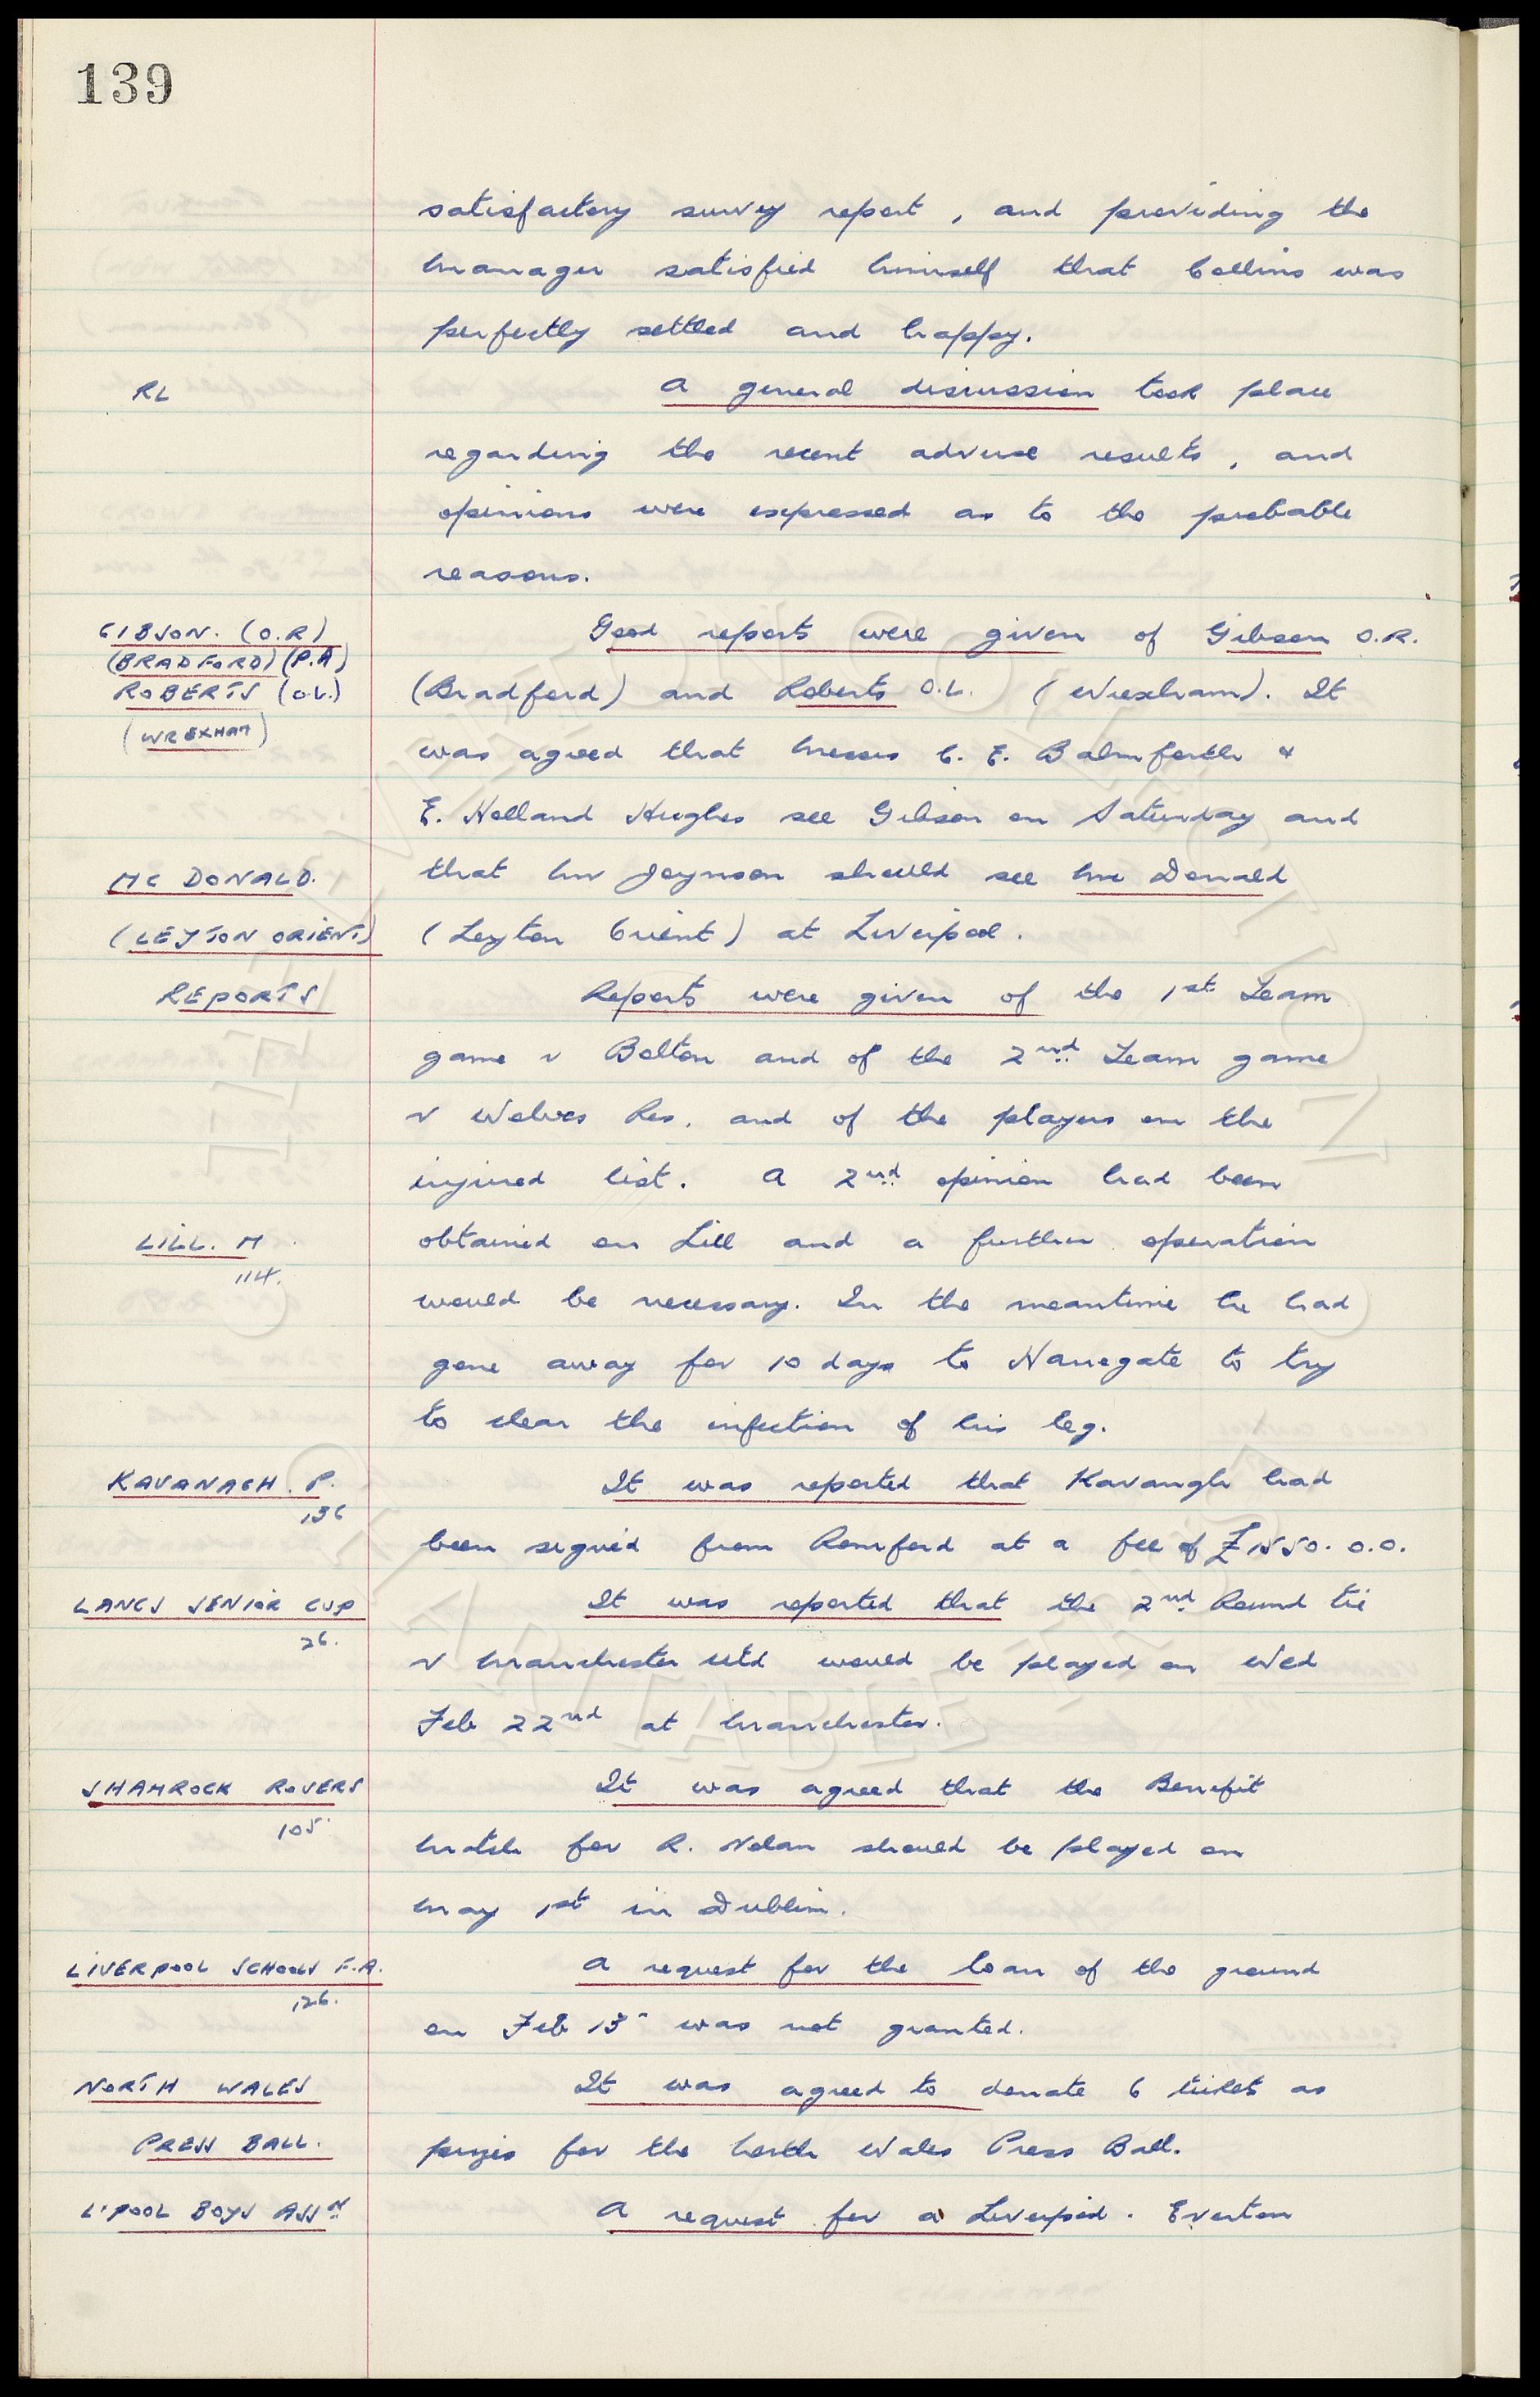 139
satisfactory survey report, and providing the
Manager satisfied himself that Collins was
perfectly settled and happy.
RL
A general discussion took place
regarding the recent adverse results, and
opinions were expressed as to the probable
reasons.
GIBSON. (O.R)
(BRADFORD) (P.A)
ROBERTS (O.L.)
(WREXHAM)
Good reports were given of Gibson O.R.
(Bradford) and Roberts O.L. (Wrexham). It
was agreed that Messrs C. E. Balmforth &
E. Holland Hughes see Gibson on Saturday and
MC DONALD.
that Mr Joynson should see Mc Donald
(LEYTON ORIENT)
(Leyton Orient) at Liverpool.
REPORTS
Reports were given of the 1st Team
game v Bolton and of the 2nd Team game
v Wolves Res. and of the players on the
injured list. A 2nd opinion had been
LILL. M
114.
obtained on Lill and a further operation
would be necessary. In the meantime he had
gone away for 10 days to Harrogate to try
to clear the infection of his leg.
KAVANAGH. P.
136
It was reported that Kavangh had
been signed from Romford at a fee of £1550. 0. 0.
LANCS SENIOR CUP
26.
It was reported that the 2nd Round tie
v Manchester Utd would be played on Wed
Feb 22nd at Manchester.
SHAMROCK ROVERS
105.
It was agreed that the Benefit
Match for R. Nolan should be played on
May 1st in Dublin.
LIVERPOOL SCHOOLS F.A.
126.
A request for the loan of the ground
on Feb 13 was not granted.
NORTH WALES
PRESS BALL.
It was agreed to donate 6 tickets as
prizes for the North Wales Press Ball.
L'POOL BOYS ASSN
A request for a Liverpool. Everton